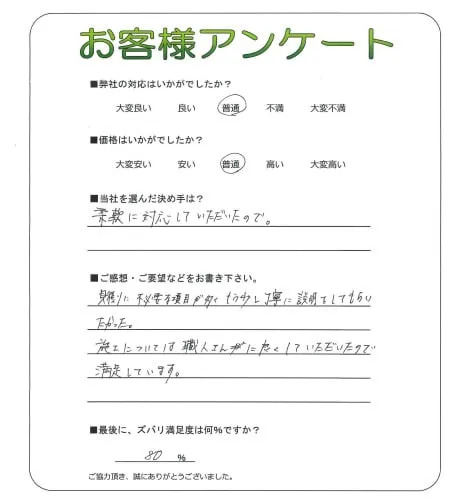 お客様アンケート
■弊社の対応はいかがでしたか？
大変良い 良い 普通 不満 大変不満
■価格はいかがでしたか？
大変安い 安い 普通 高い 大変高い
■当社を選んだ決め手は？
柔軟に対応していただいたので。
■ご感想・ご要望などをお書き下さい。
見積りに不必要な項目が多く もう少し丁寧に説明をしてもらい
たかった。
施工については職人さんがに良くしていただいたので
満足しています。
■最後に、ズバリ満足度は何%ですか？
80 %
ご協力頂き、誠にありがとうございました。